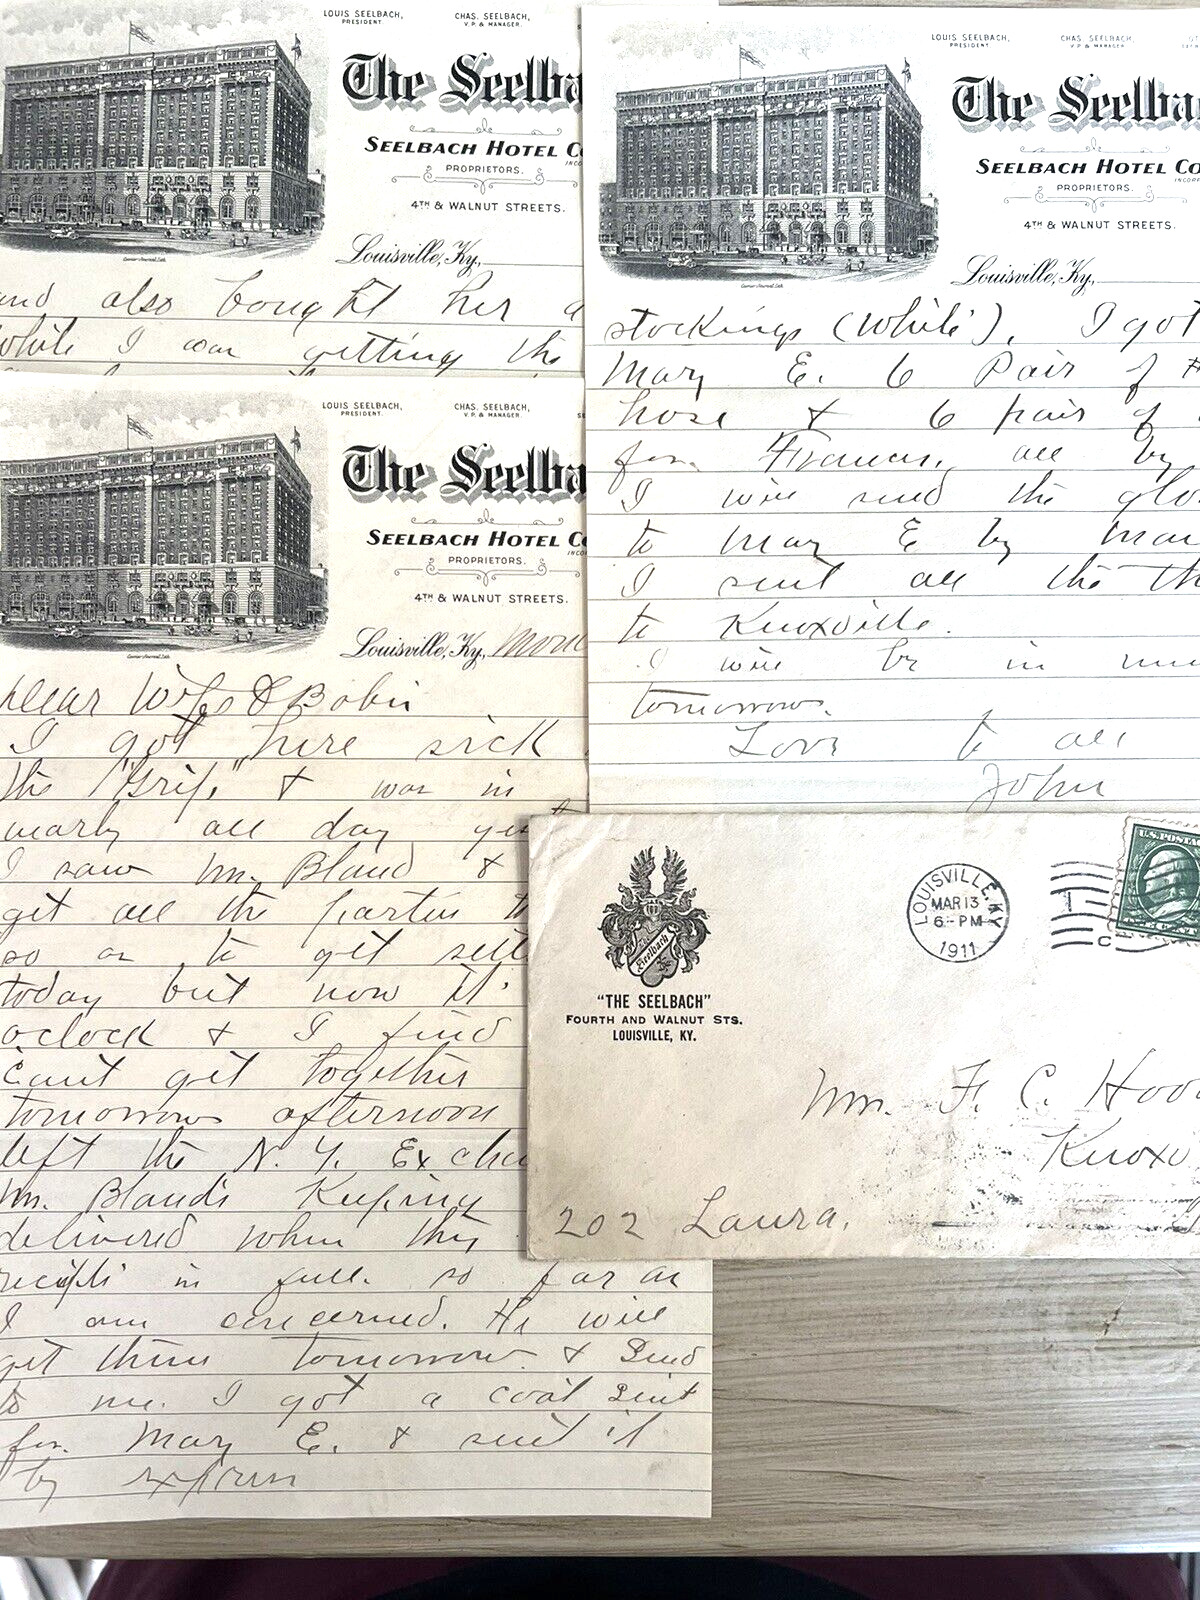 LOUIS SEELBACH,
PRESIDENT.
CHAS. SEELBACH,
V.P. & MANAGER.
The Seelba
SEELBACH HOTEL Co
INC
PROPRIETORS.
4TH & WALNUT STREETS.
Louisville, Ky.,
Courier-Journal Lith.
and also bought her a
while I was getting the
LOUIS SEELBACH,
PRESIDENT.
CHAS. SEELBACH,
V.P. & MANAGER.
The Seelba
SEELBACH HOTEL Co
INC
PROPRIETORS.
4TH & WALNUT STREETS.
Louisville, Ky., Mon
Courier-Journal Lith.
Dear Wife & Babies
I got here sick
the "Grip" & was in
nearly all day yest
I saw Mr. Bland &
get all the parties t
so as to get settl
today but now it's
o'clock & I find
can't get together
tomorrows afternoon
left the N. Y. Excha
Mr. Bland's Keeping
delivered when they
receipts in full. so far as
I am concerned. He will
get them tomorrow & send
to me. I got a coat suit
for Mary E. & sent it
by express
LOUIS SEELBACH,
PRESIDENT.
CHAS. SEELBACH,
V.P. & MANAGER.
The Seelba
SEELBACH HOTEL Co
INCORP
PROPRIETORS.
4TH & WALNUT STREETS.
Louisville, Ky.,
Courier-Journal Lith.
stockings (White). I got
Mary E. 6 Pair of
hose & 6 pair of
for Frances, all by
I will send the glo
to Mary E by mai
I sent all the th
to Knoxville.
I will be in
tomorrow.
Love to all
John
Seelbach
"THE SEELBACH"
FOURTH AND WALNUT STS.
LOUISVILLE, KY.
LOUISVILLE, KY.
MAR 13
6-PM
1911
1
C
U.S. POSTA
Mrs. F. C. Hoo
Knoxvi
202 Laura.